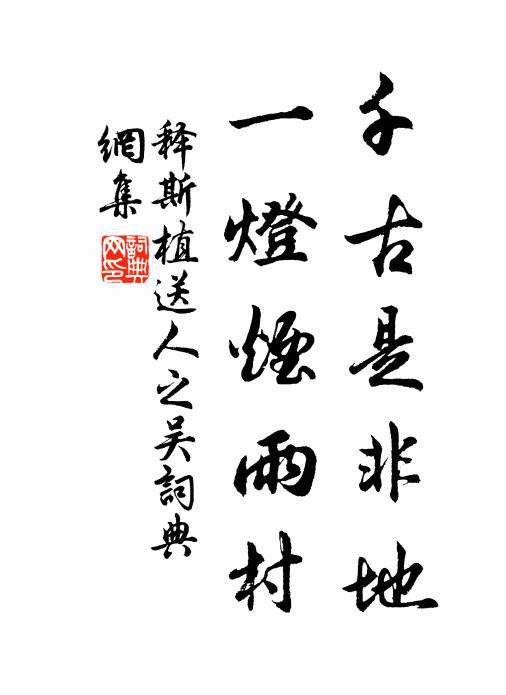 千古是非地
一燈煙雨村
释斯植送人之吴詞典
網集
詞典網印